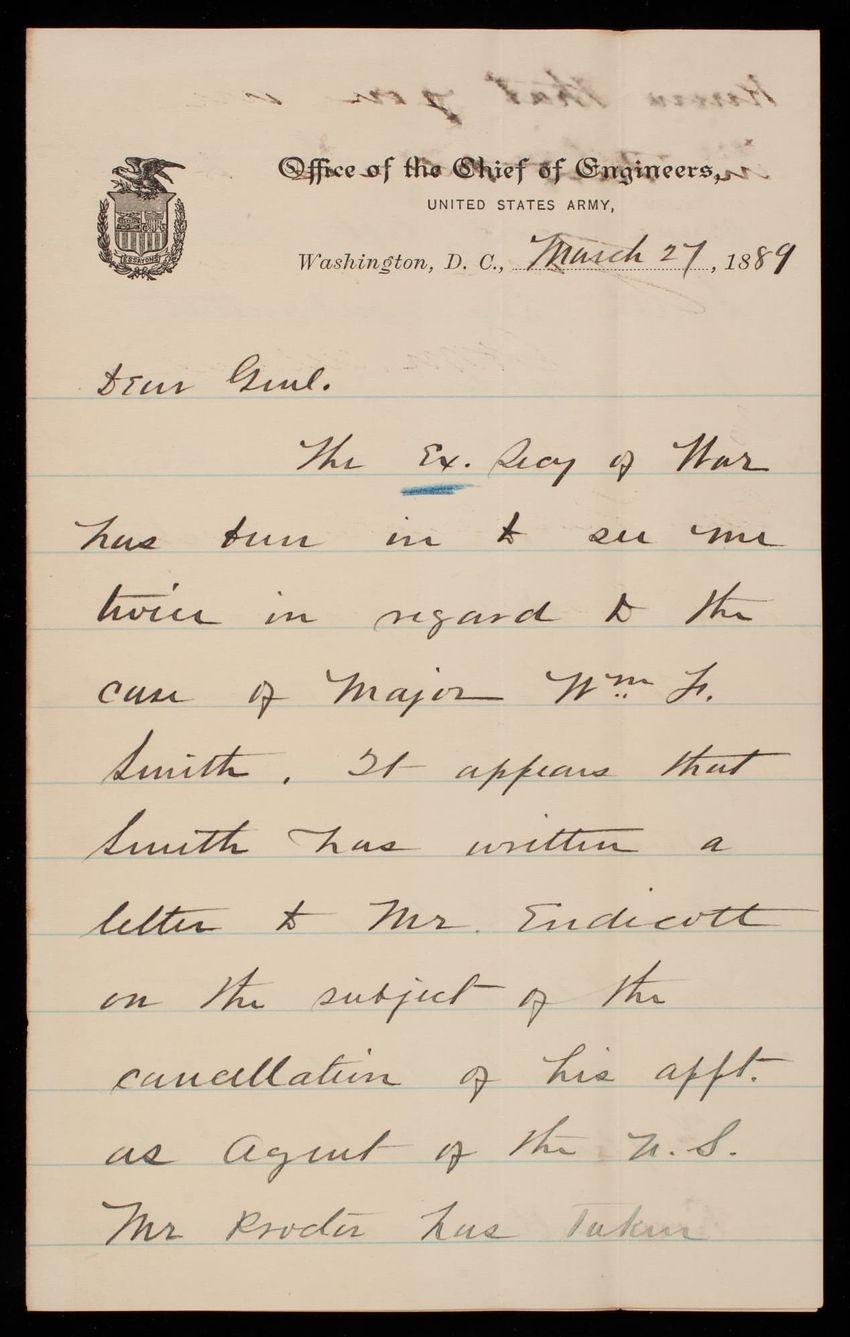 Office of the Chief of Engineers,
UNITED STATES ARMY,
ESSAYONS
Washington, D. C., March 27, 1889
Dear Genl.
The Ex. Secy of War
has been in to see me
twice in regard to the
case of Major Wm F.
Smith. It appears that
Smith has written a
letter to Mr. Endicott
on the subject of the
cancellation of his appt.
as Agent of the U.S.
Mr Proctor has taken